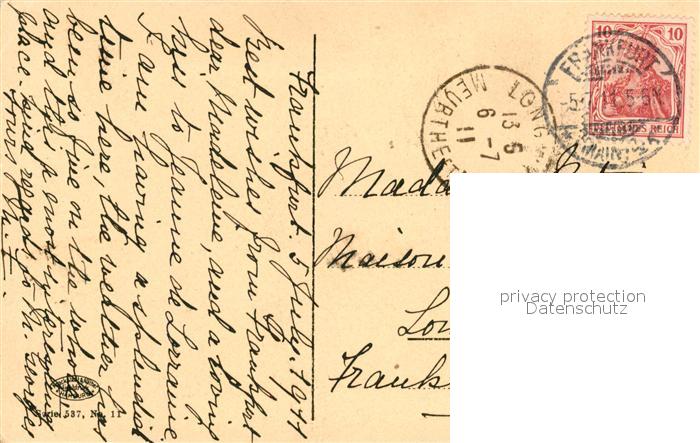 Frankfurt. 5 July. 1911
Best wishes from Frankfurt
dear Madeleine, and a loving
kiss to Jeanne de Lorraine
I am having a splendid
time here, the weather has
been so fine on the whole
and this a most
place. Kind regards to M. Georges
Yours
Serie 537, No. 11
10 10
DEUTSCHES REICH
FRANKFURT
MAIN
LONG
13 5
6 - 7
11
MEURTHE
Mada
Maison
Lon
Frank
privacy protection
Datenschutz